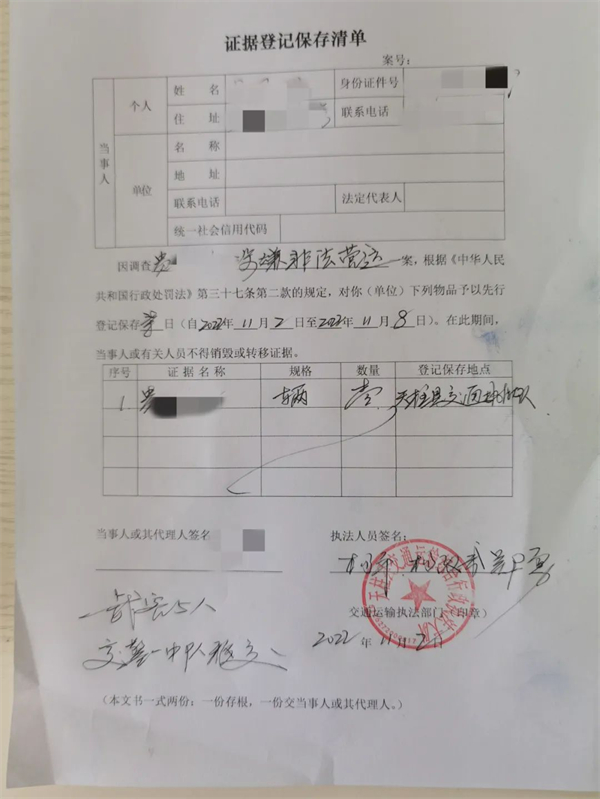 证据登记保存清单
案号：
当事人
个人
姓 名
身份证件号
住 址
联系电话
单位
名 称
地 址
联系电话
法定代表人
统一社会信用代码
因调查 涉嫌非法营运一案，根据《中华人民
共和国行政处罚法》第三十七条第二款的规定，对你（单位）下列物品予以先行
登记保存 日（自2022年11月2日至2022年11月8日）。在此期间，
当事人或有关人员不得销毁或转移证据。
序号 证据名称 规格 数量 登记保存地点
1. 贵 辆 壹 天柱县交
当事人或其代理人签名
执法人员签名：
交通运输执法部门（印章）
2022年11月2日
5人
交警一中队移交
（本文书一式两份：一份存根，一份交当事人或其代理人。）